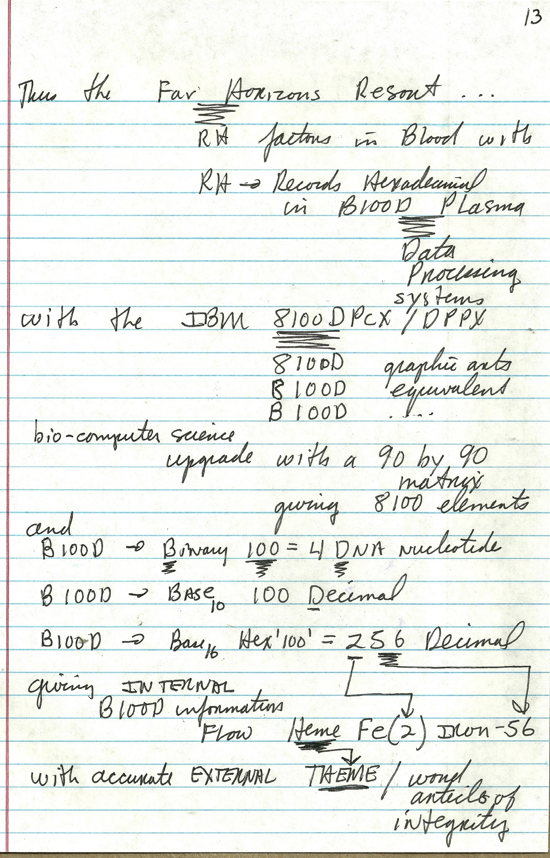 13
Thus the Far Horizons Resort ...
RH factors in Blood with
RH → Records Hexadecimal
in B100D Plasma
Data
Processing
systems
with the IBM 8100 DPCX / DPPX
8100D graphic arts
B100D equivalent
B100D ....
bio-computer science
upgrade with a 90 by 90
matrix
giving 8100 elements
and
B100D → Binary 100 = 4 DNA nucleotide
B100D → BASE10 100 Decimal
B100D → Base16 Hex'100' = 256 Decimal
giving INTERNAL
B100D information
Flow Heme Fe(2) Iron-56
with accurate EXTERNAL THEME / word
of
integrity